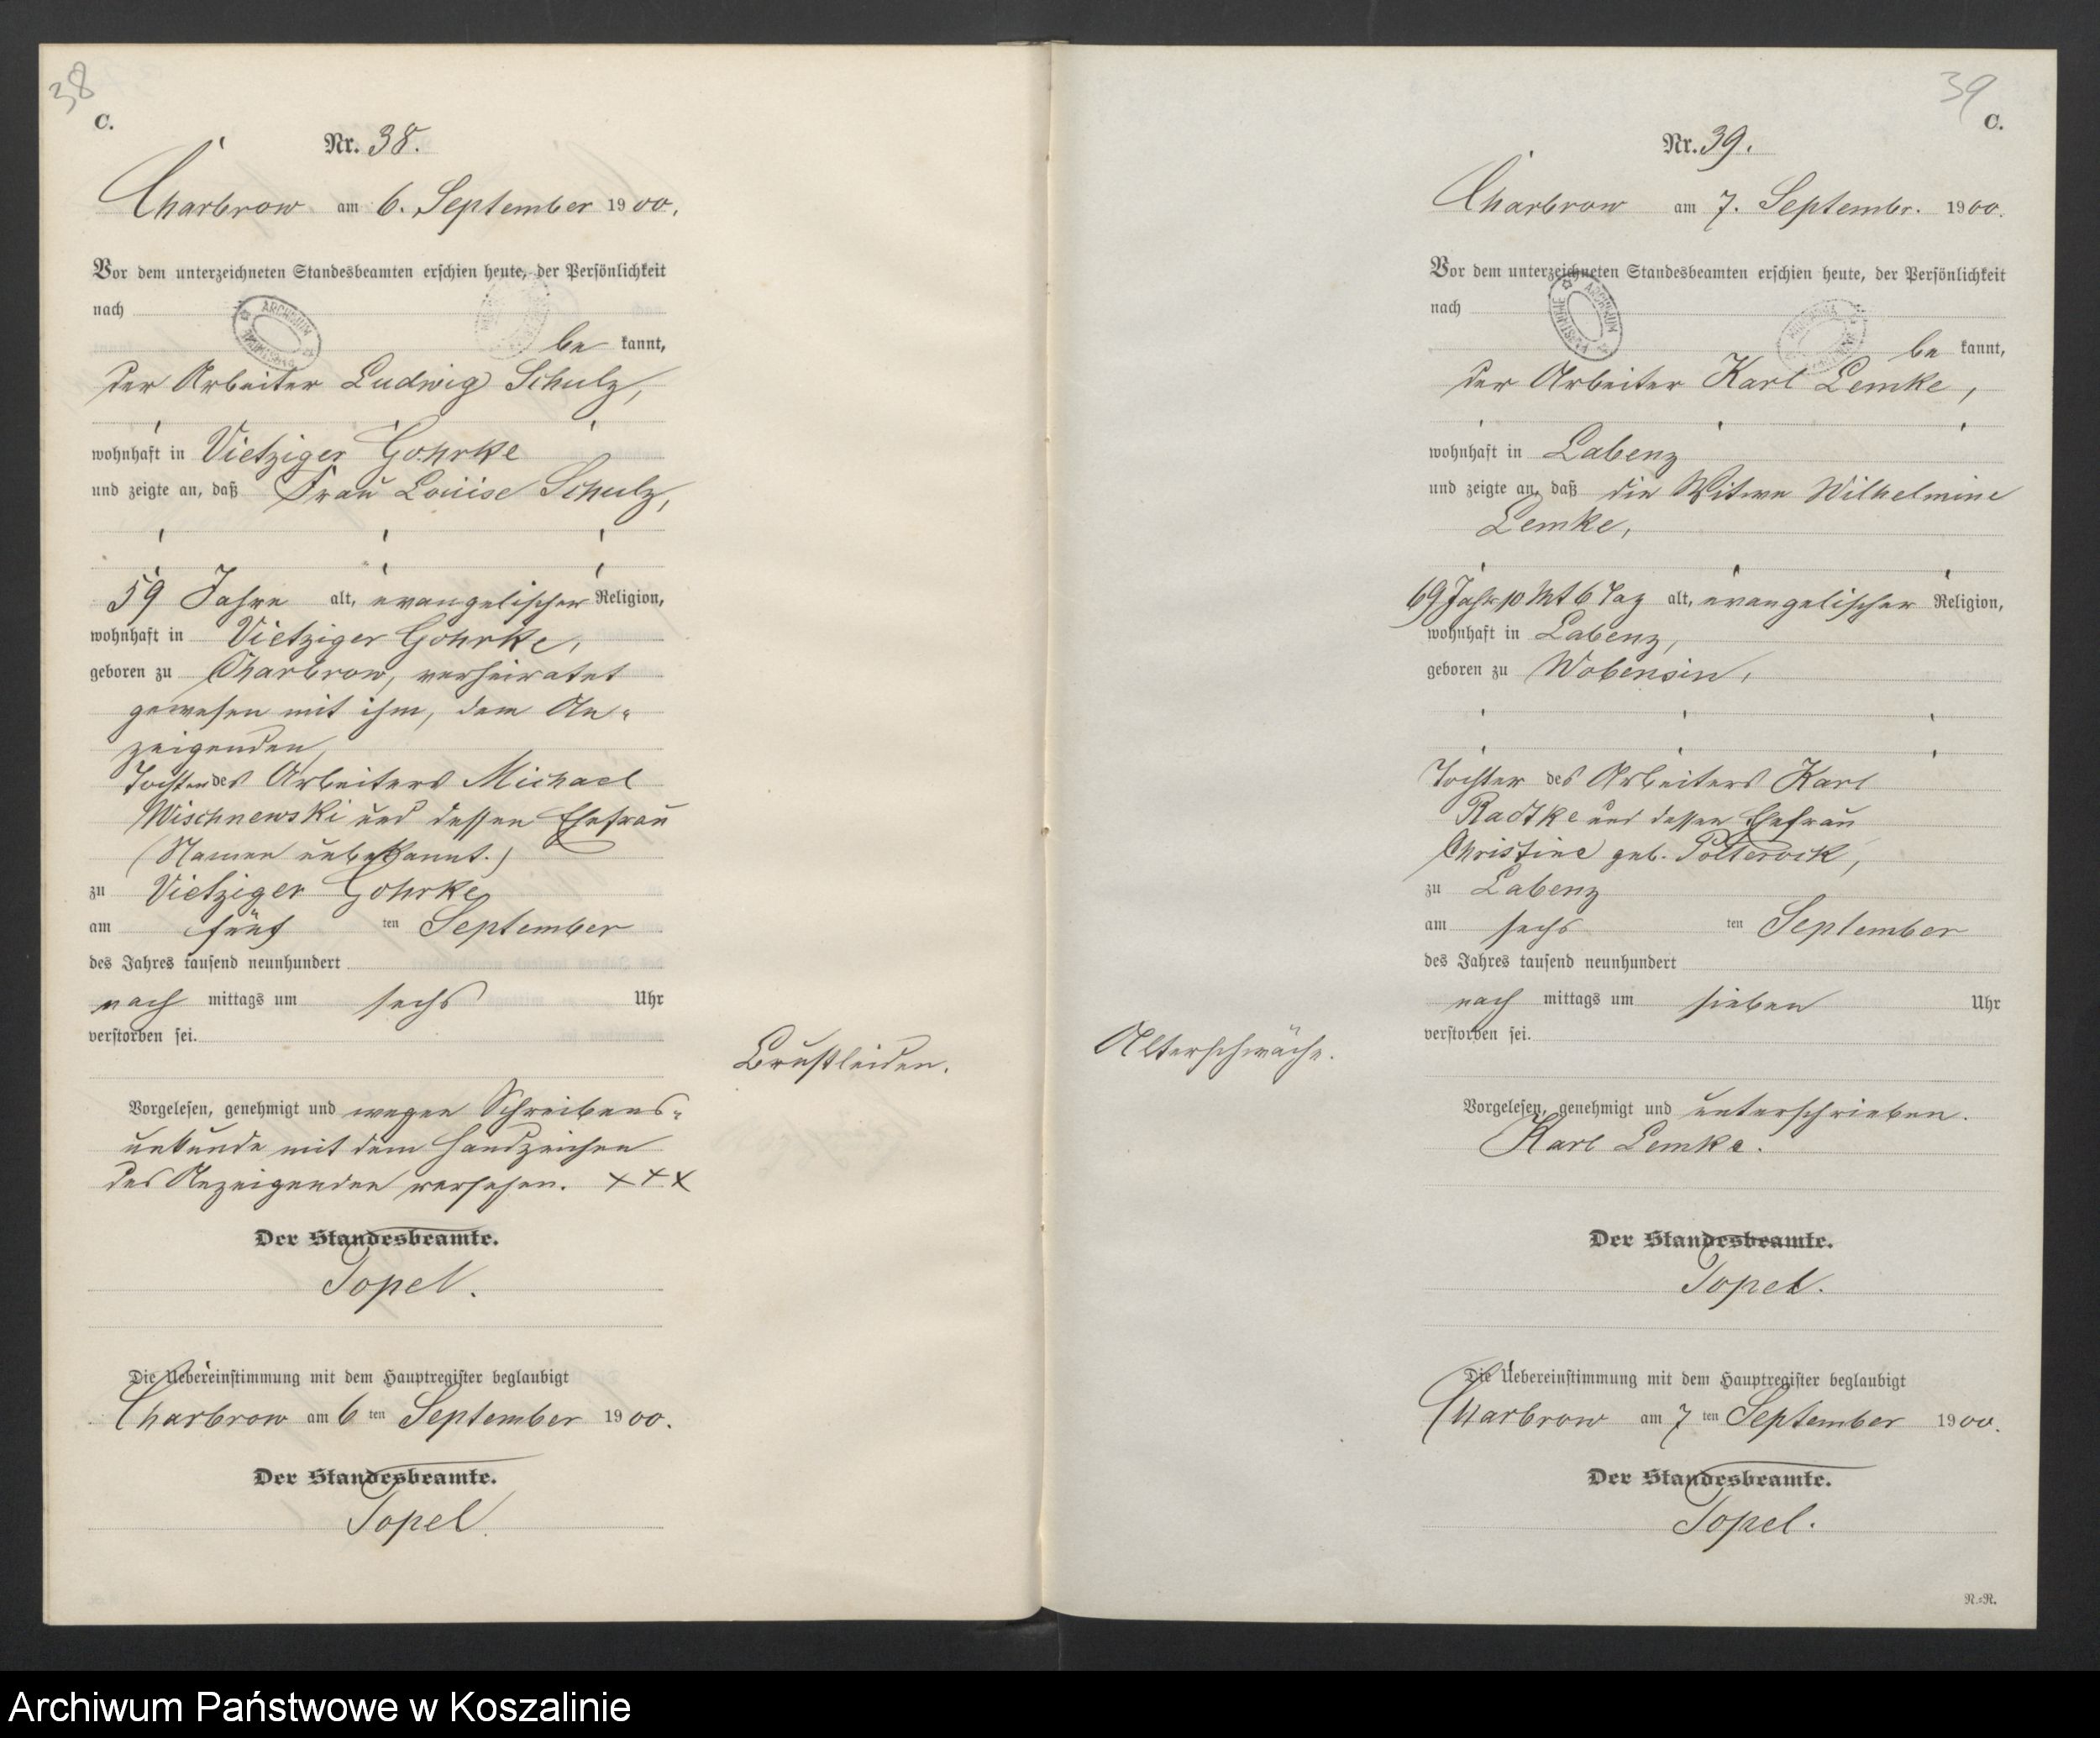 38
C.
Nr. 38.
Charbrow am 6. September 1900.
Vor dem unterzeichneten Standesbeamten erschien heute, der Persönlichkeit
nach
be kannt,
der Arbeiter Ludwig Schulz,
wohnhaft in Vietziger Gohrke
und zeigte an, daß Frau Louise Schulz,
59 Jahre alt, evangelischer Religion,
wohnhaft in Vietziger Gohrke,
geboren zu Charbrow, verheiratet
gewesen mit ihm, dem An-
zeigenden,
Tochter des Arbeiters Michael
Wischnewski und dessen Ehefrau
(Namen unbekannt.)
zu Vietziger Gohrke
am fünf ten September
des Jahres tausend neunhundert
nach mittags um sechs Uhr
verstorben sei.
Brustleiden.
Vorgelesen, genehmigt und wegen Schreibens-
unkunde mit dem Handzeichen
des Anzeigenden versehen. +++
Der Standesbeamte.
Topel.
Die Uebereinstimmung mit dem Hauptregister beglaubigt
Charbrow am 6 ten September 1900.
Der Standesbeamte.
Topel.
39
C.
Nr. 39.
Charbrow am 7. Septembr. 1900.
Vor dem unterzeichneten Standesbeamten erschien heute, der Persönlichkeit
nach
be kannt,
der Arbeiter Karl Lemke,
wohnhaft in Labenz
und zeigte an, daß die Witwe Wilhelmine
Lemke,
69 Jahr 10 Mt 6 Tag alt, evangelischer Religion,
wohnhaft in Labenz,
geboren zu Wobensin,
Tochter des Arbeiters Karl
Radtke und dessen Ehefrau
Christine geb. Polterock,
zu Labenz
am sechs ten September
des Jahres tausend neunhundert
nach mittags um sieben Uhr
verstorben sei.
Alterschwäche.
Vorgelesen, genehmigt und unterschrieben.
Karl Lemke.
Der Standesbeamte.
Topel.
Die Uebereinstimmung mit dem Hauptregister beglaubigt
Charbrow am 7 ten September 1900.
Der Standesbeamte.
Topel.
N.=R.
Archiwum Państwowe w Koszalinie